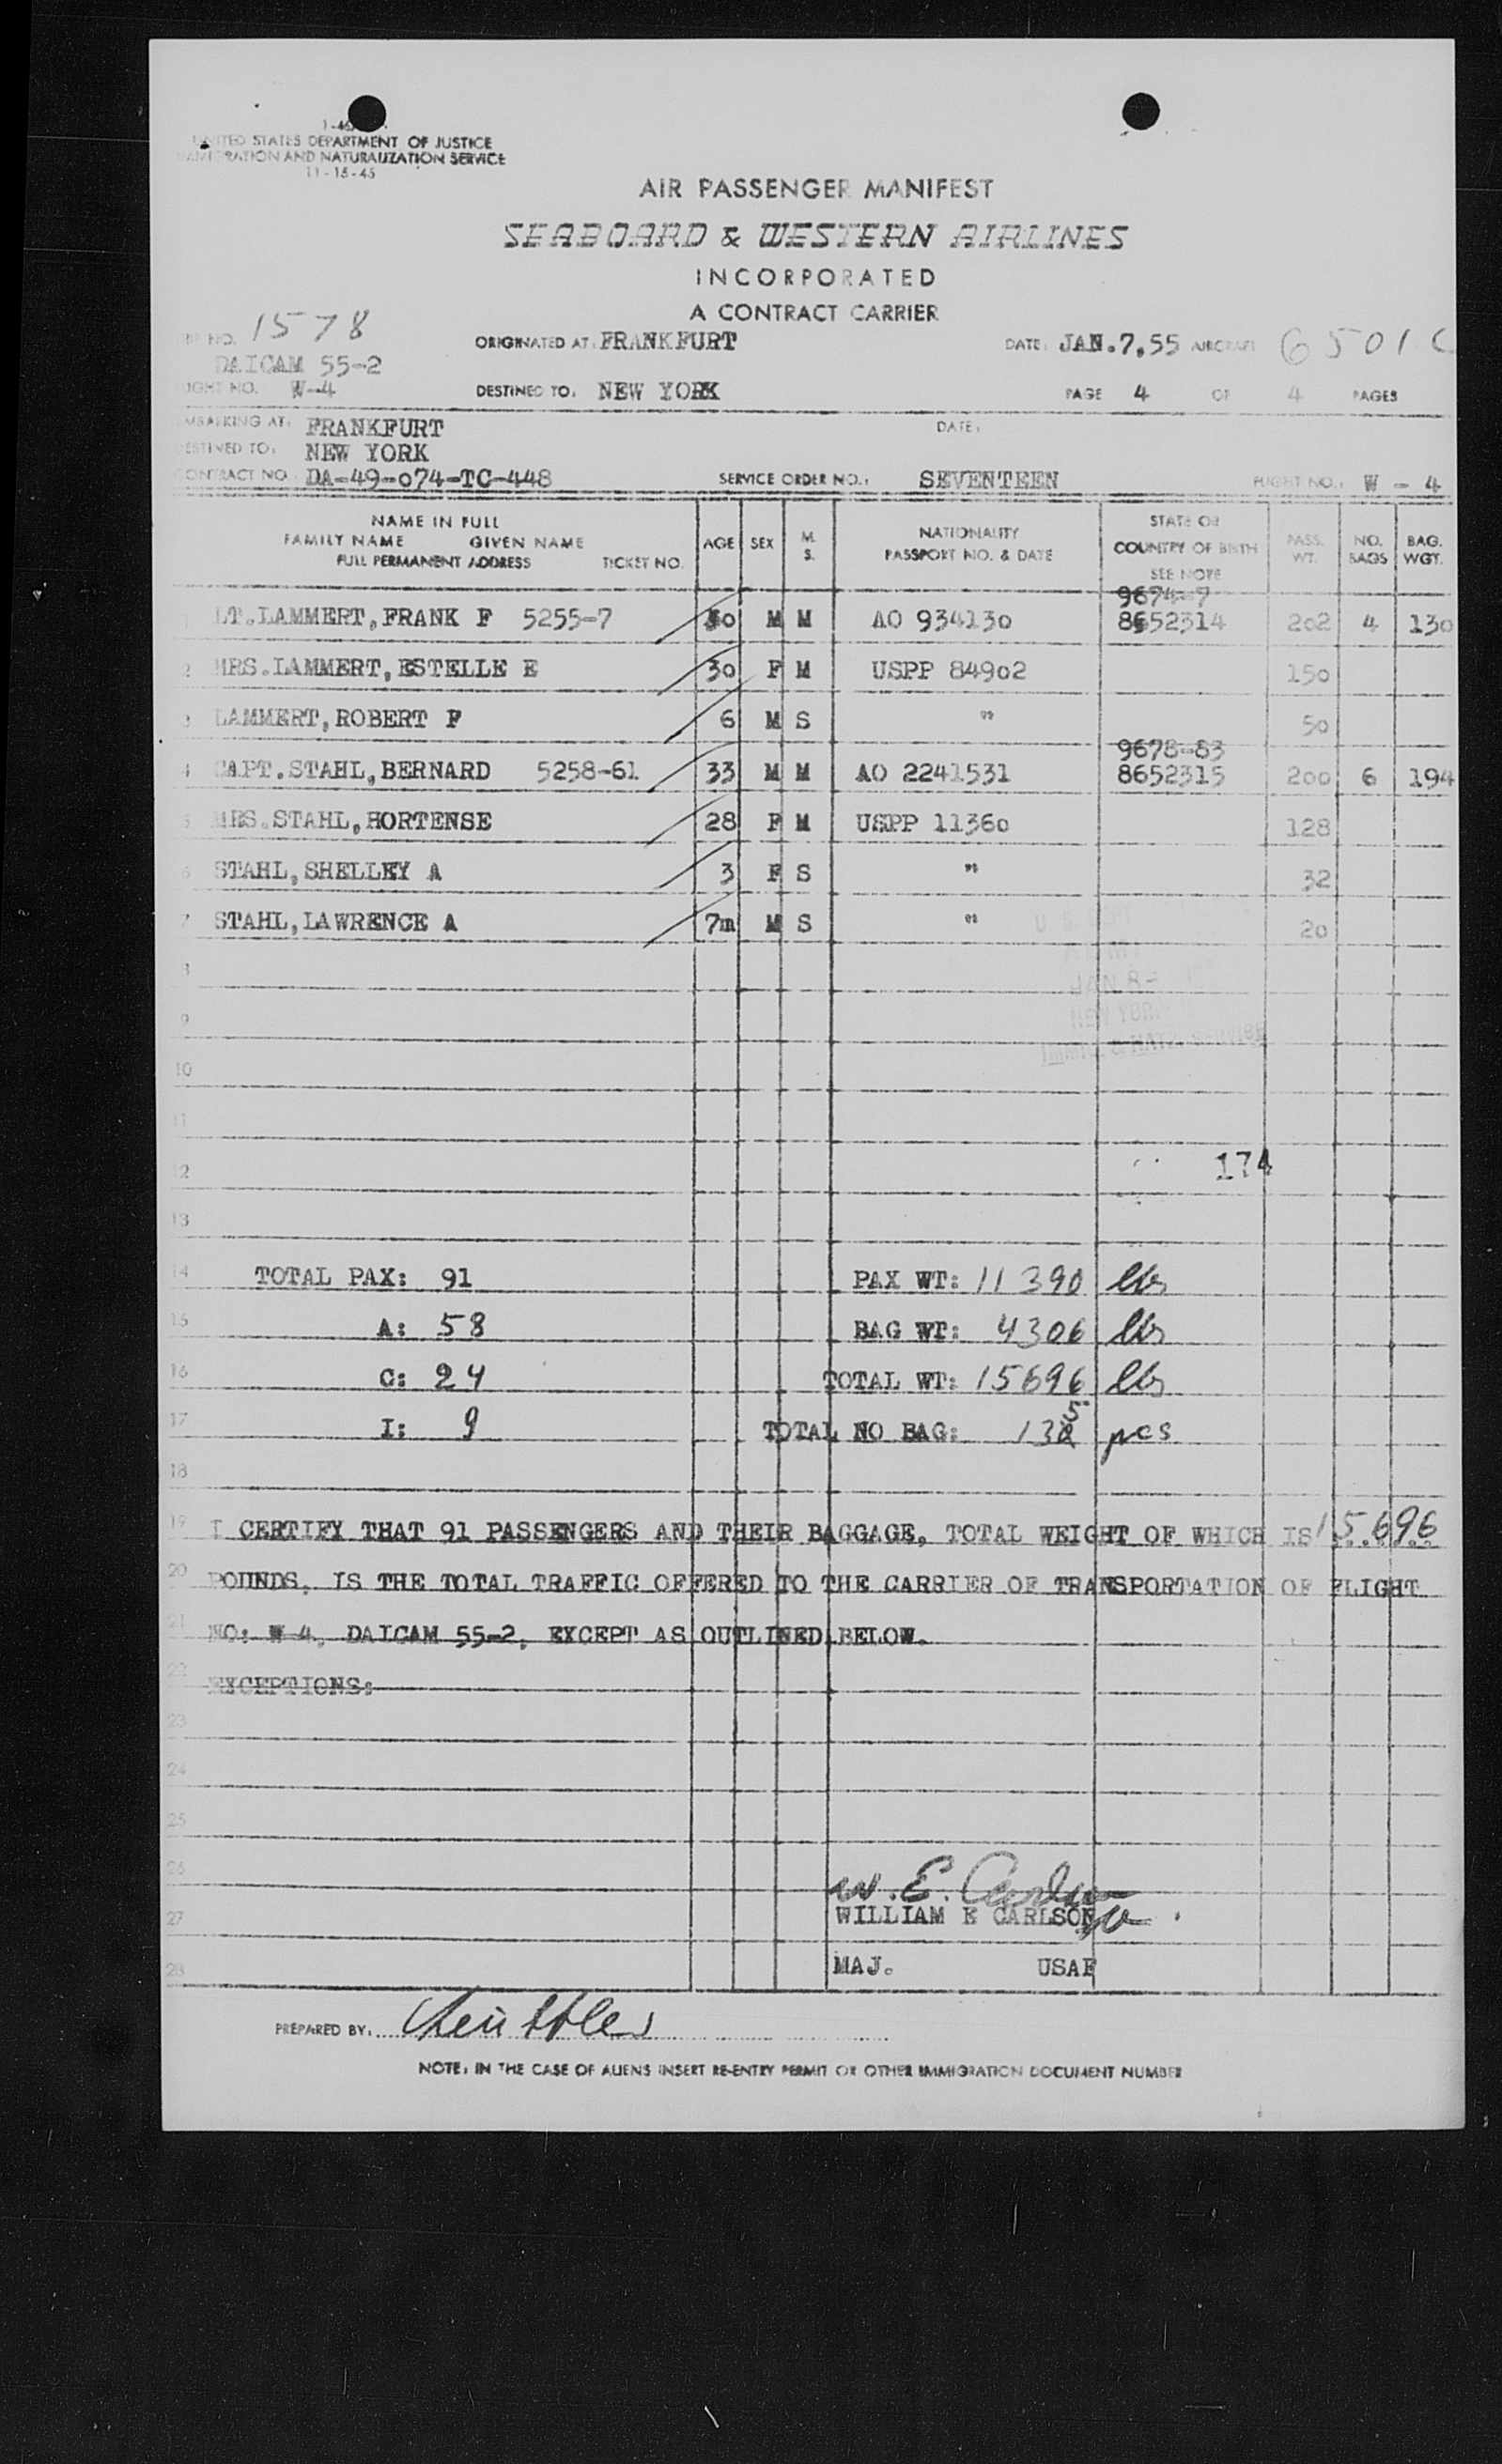 UNITED STATES DEPARTMENT OF JUSTICE
IMMIGRATION AND NATURALIZATION SERVICE
11-15-45
AIR PASSENGER MANIFEST
SEABOARD & WESTERN AIRLINES
INCORPORATED
A CONTRACT CARRIER
NO. 1578 ORIGINATED AT: FRANKFURT DATE: JAN.7,55 AIRCRAFT 6501C
DAICAM 55-2
FLIGHT NO. W-4 DESTINED TO: NEW YORK PAGE 4 OF 4 PAGES
EMBARKING AT: FRANKFURT DATE:
DESTINED TO: NEW YORK
CONTRACT NO. DA-49-074-TC-448 SERVICE ORDER NO.: SEVENTEEN FLIGHT NO.: W - 4
NAME IN FULL
FAMILY NAME GIVEN NAME
FULL PERMANENT ADDRESS TICKET NO. AGE SEX M. S. NATIONALITY PASSPORT NO. & DATE STATE OR COUNTRY OF BIRTH SEE NOTE PASS. WT. NO. BAGS BAG. WGT.
9674-7
1 LT.LAMMERT,FRANK F 5255-7 30 M M AO 934130 8652314 202 4 130
2 MRS.LAMMERT,ESTELLE E 30 F M USPP 84902 150
3 LAMMERT,ROBERT F 6 M S " 50
9678-83
4 CAPT.STAHL,BERNARD 5258-61 33 M M AO 2241531 8652315 200 6 194
5 MRS.STAHL,HORTENSE 28 F M USPP 11360 128
6 STAHL,SHELLEY A 3 F S " 32
7 STAHL,LAWRENCE A 7m M S " 20
8
JAN 8-
9
NEW YORK
10
11
12 174
13
14 TOTAL PAX: 91 PAX WT: 11390 lbs
15 A: 58 BAG WT: 4306 lbs
16 C: 24 TOTAL WT: 15696 lbs
17 I: 9 TOTAL NO BAG: 135 pcs
18
19 I CERTIFY THAT 91 PASSENGERS AND THEIR BAGGAGE, TOTAL WEIGHT OF WHICH IS 15696
20 POUNDS, IS THE TOTAL TRAFFIC OFFERED TO THE CARRIER OF TRANSPORTATION OF FLIGHT
21 NO: W 4, DAICAM 55-2, EXCEPT AS OUTLINED BELOW.
22 EXCEPTIONS:
23
24
25
26 W. E. Carlson
27 WILLIAM E CARLSON
28 MAJ. USAF
PREPARED BY:
NOTE: IN THE CASE OF ALIENS INSERT RE-ENTRY PERMIT OR OTHER IMMIGRATION DOCUMENT NUMBER